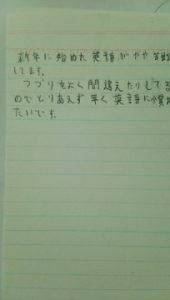 新年に始めた英語がやや苦戦
してます。
つづりをよく間違えたりしてる
のでとりあえず早く英語に慣れ
たいです。